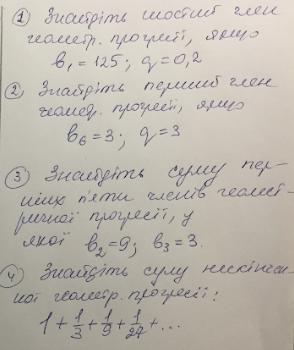 ① Знайдіть шостий член
геометр. прогресії, якщо
b₁ = 125; q = 0,2
② Знайдіть перший член
геометр. прогресії, якщо
b₆ = 3; q = 3
③ Знайдіть суму пер-
ших п'яти членів геомет-
ричної прогресії, у
якої b₂ = 9; b₃ = 3.
④ Знайдіть суму нескінчен-
ної геометр. прогресії:
1 + 1/3 + 1/9 + 1/27 + ...